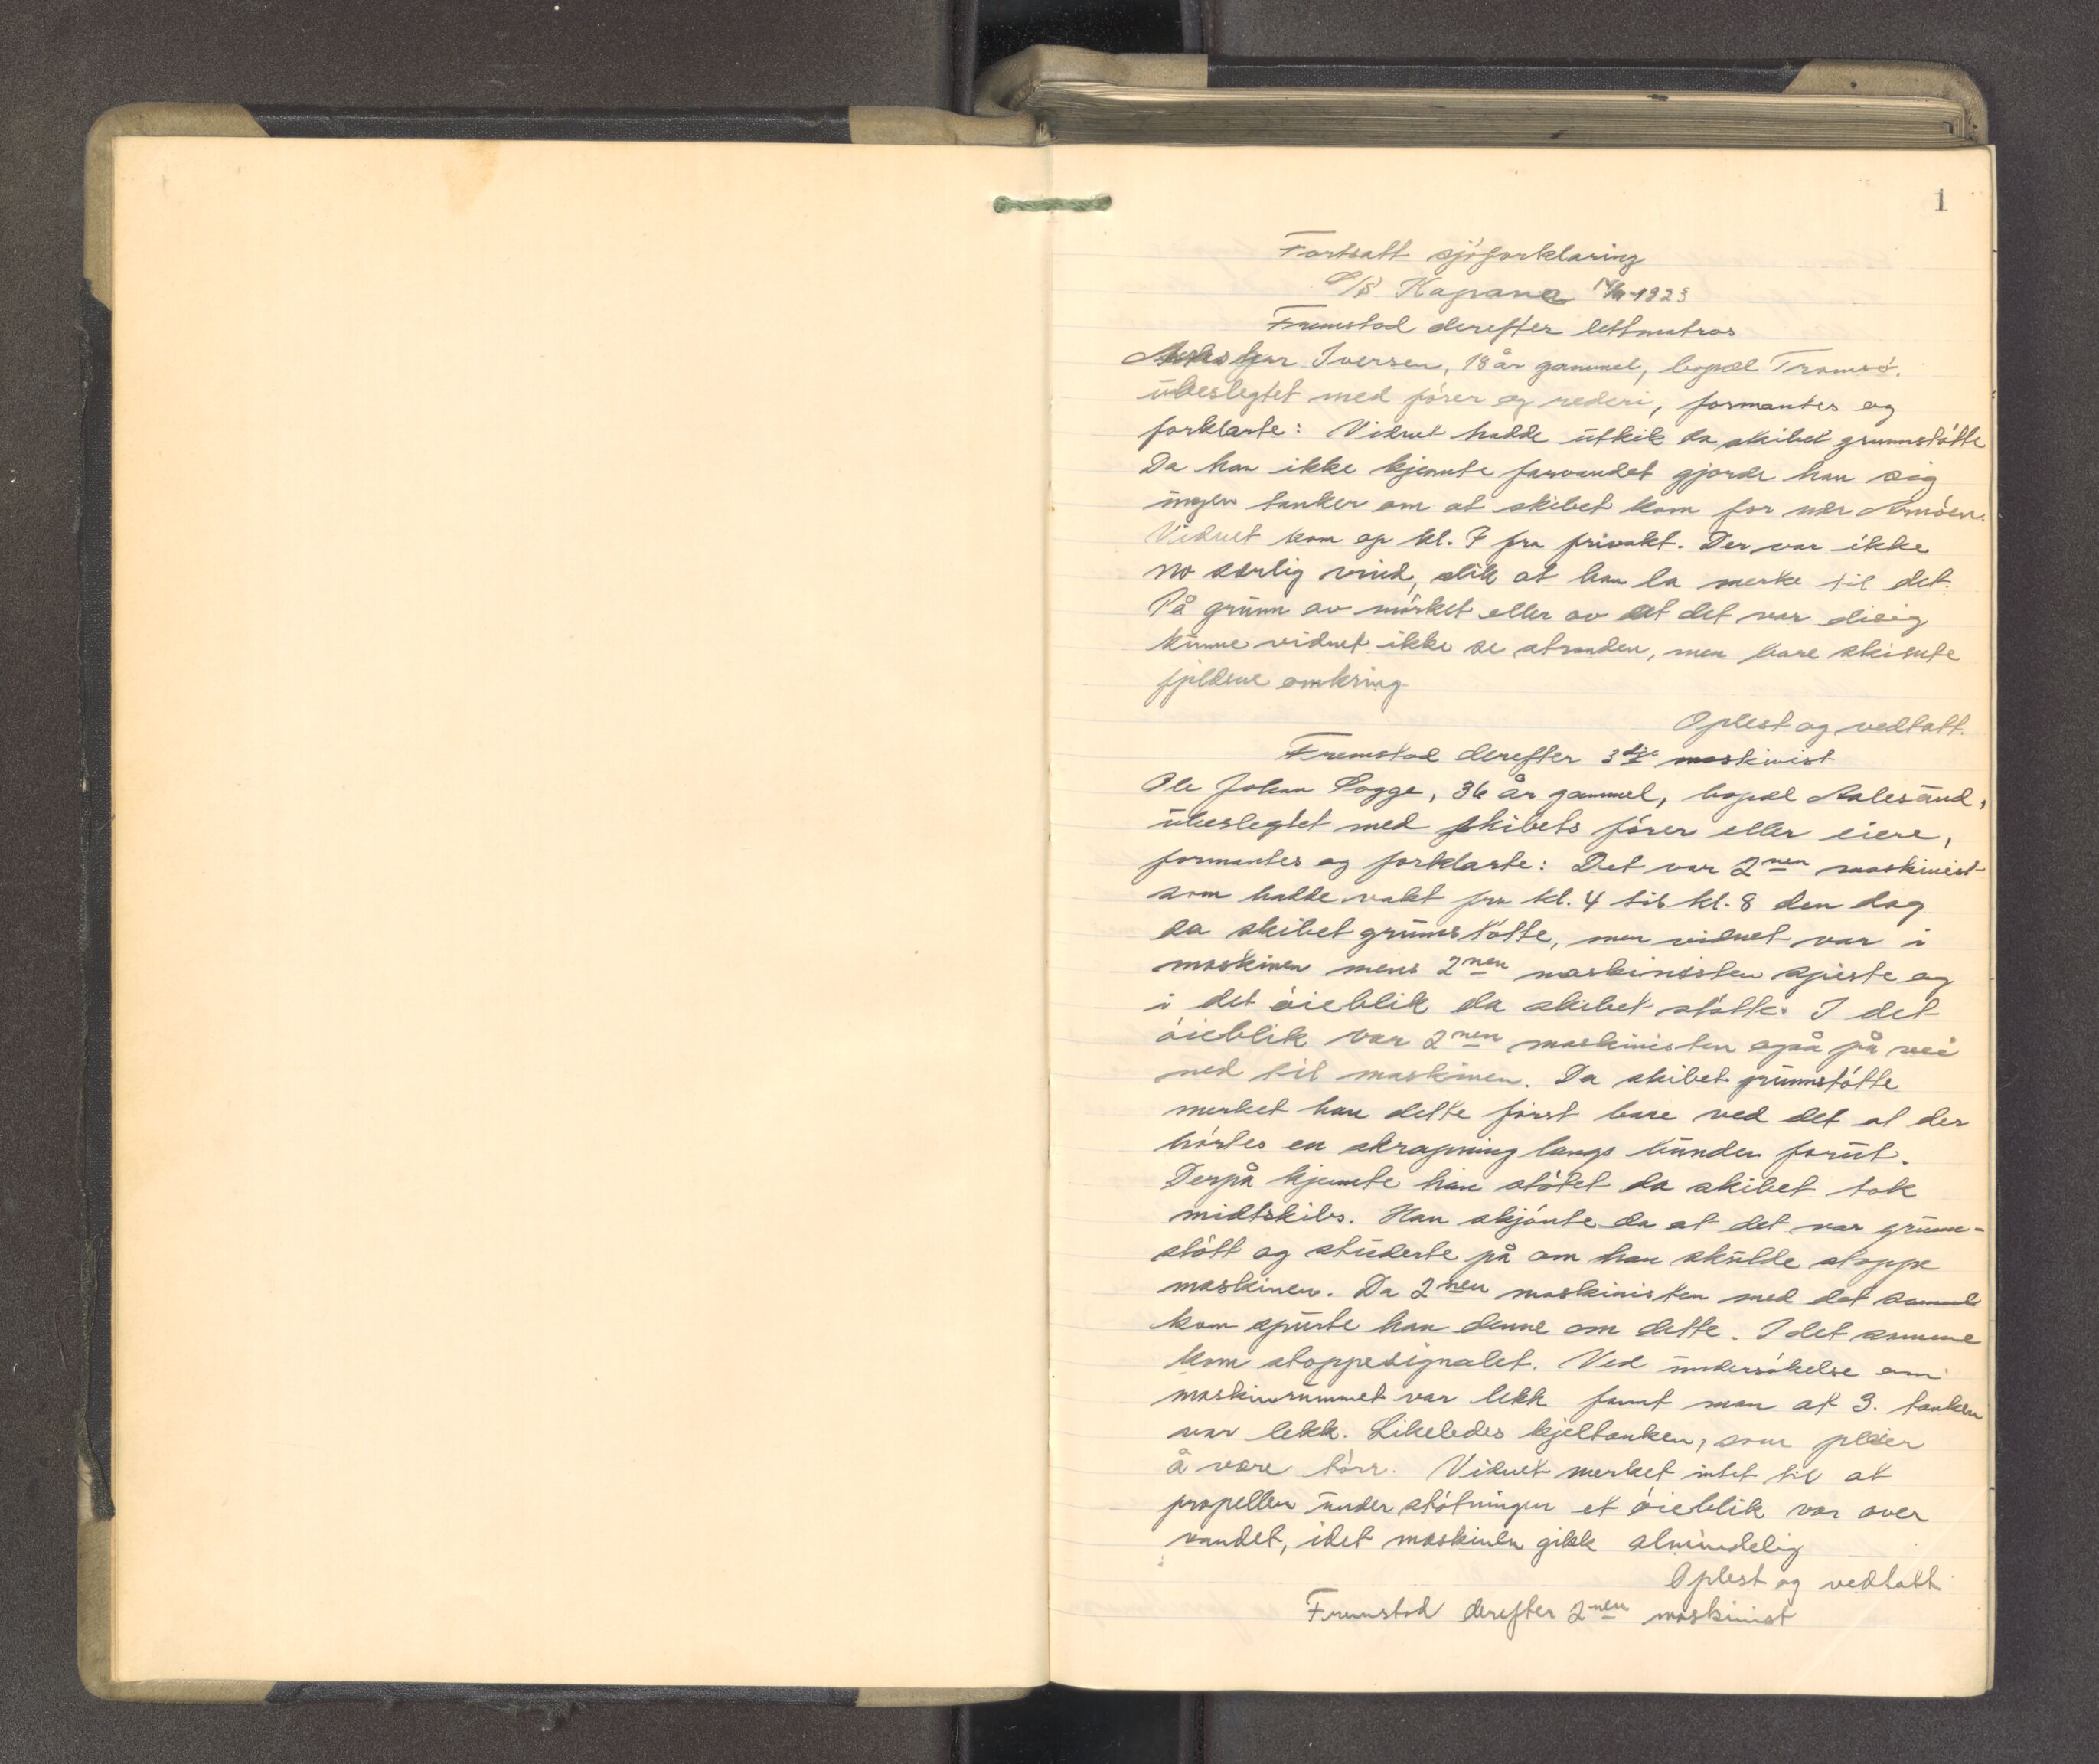 1
Fortsatt sjöforklaring
S/S Kaprano 1923
Fremstod derefter lettmatros
Iversen, 18 år gammel, bopæl Tromsö.
ubeslegtet med förer og rederi, formantes og
forklarte: Vidnet hadde utkik da skibet grunnstötte
Da han ikke kjennte farvandet gjorde han sig
ingen tanker om at skibet kom for nær Arnöen.
Vidnet kom op kl. 7 fra frivakt. Der var ikke
no særlig vind, slik at han la merke til det.
På grunn av mörket eller av at det var disig
kunne vidnet ikke se stranden, men bare skimte
fjeldene omkring
Oplest og vedtatt.
Fremstod derefter 3dje maskinist
Ole Johan Sogge, 36 år gammel, bopæl Aalesund,
ubeslegtet med skibets förer eller eiere,
formantes og forklarte: Det var 2nen maskinist
som hadde vakt fra kl. 4 til kl. 8 den dag
da skibet grunnstötte, men vidnet var i
maskinen mens 2nen maskinisten spiste og
i det öieblik da skibet stötte. I det
öieblik var 2nen maskinisten også på vei
ned til maskinen. Da skibet grunnstötte
merket han dette först bare ved det at der
hörtes en skrapning langs bunden forut.
Derpå kjennte han stötet da skibet tok
midtskibs. Han skjönte da at det var grunn-
stött og studerte på om han skulde stoppe
maskinen. Da 2nen maskinisten med det samme
kom spurte han denne om dette. I det samme
kom stoppesignalet. Ved undersökelse om
maskinrummet var lekk fant man at 3. tanken
var lekk. Likeledes kjeltanken, som pleier
å være törr. Vidnet merket intet til at
propellen under stötningen et öieblik var over
vandet, idet maskinen gikk almindelig
Oplest og vedtatt
Fremstod derefter 2nen maskinist